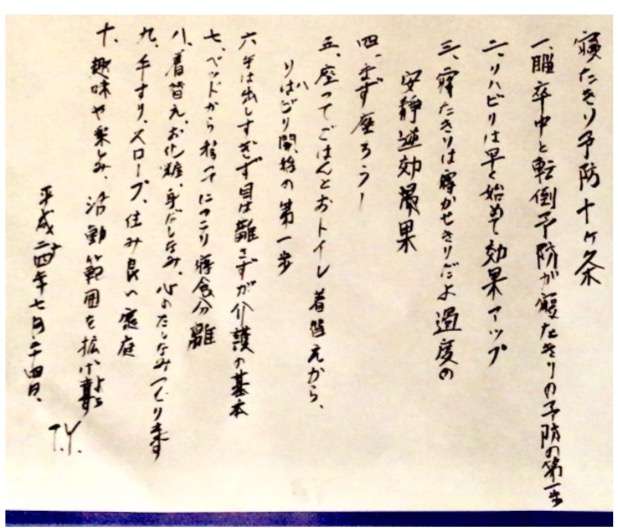 寝たきり予防十ヶ条
一、脳卒中と転倒予防が寝たきりの予防の第一歩
二、リハビリは早く始めて効果アップ
三、寝たきりは寝かせきりだよ過度の
安静逆効果
四、まず座ろう!
五、座ってごはんとおトイレ 着替えから、
りはびり開始の第一歩
六、手は出しすぎず目は離さずが介護の基本
七、ベッドから移ってにっこり寝食分離
八、着替え、お化粧、身だしなみ、心のたしなみつくります
九、手すり、スロープ、住み良い家庭
十、趣味や楽しみ、活動範囲を拡げ
平成二十四年七月二十四日、
T.Y.